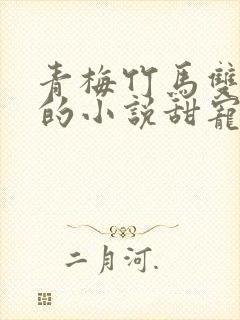 青梅竹馬雙
的小說甜寵
二月河.